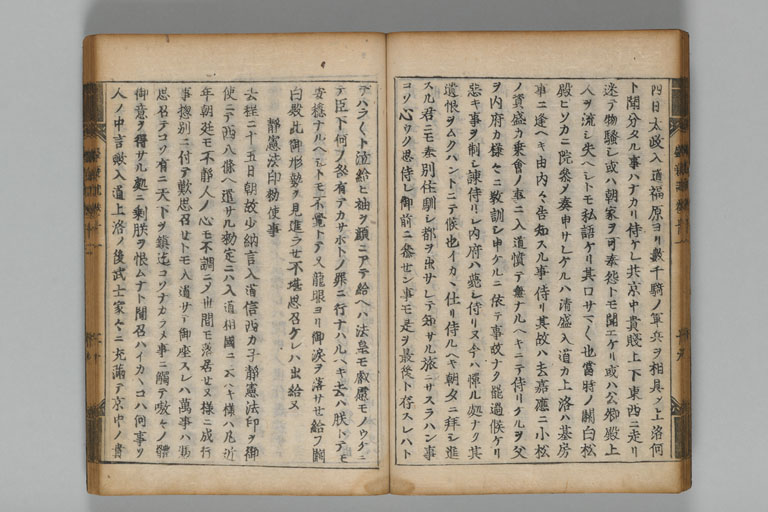 四日太政入道福原ヨリ數千騎ノ軍兵ヲ相具メ上洛何
ト聞分タル事ハナカリ侍ケレ共京中貴賤上下東西ニ走リ
迷テ物騷シ或ハ朝家ヲ可奉怨トモ聞エケリ或ハ公卿殿上
人ヲ流シ失ヘシトモ私語ケリ其口サマ〳〵也當時ノ關白松
殿ヒソカニ院參メ奏申サレケルハ清盛入道カ上洛ハ基房
事ニ逢ヘキ由內々告知スル事侍リ其故ハ去嘉應ニ小松
ノ資盛カ乗會ノ事ニ入道憤テ無ナルヘキニテ侍リケルヲ父
ヲ内府カ様々ニ敎訓シ申ケルニ依テ事故ナク罷過候ケリ
惡キ事ヲ制シ諫侍リシ内府ハ薨シ侍リヌ今ハ憚ル処ナク其
遺恨ヲムクハントニテ候也イカヽ仕リ侍ルヘキ朝夕ニ拜シ進
スル君ニモ奉別住馴シ都ヲ出サレテ知サル旅ニサスラハン事
コソ心ウク思侍レ御前ニ參セン事モ是ヲ最後ト存スレハト
テハラ〳〵ト泣給ヒ袖ヲ顏ニアテ給ヘハ法皇モ叡慮モノウケニ
テ臣下何ノ咎有テカサホトノ罪ニ行ナハルヘキ去ハ朕トテモ
安穩ナルヘシトモ不覺トテ又龍眼ヨリ御淚ヲ落サせ給フ關
白殿此御形勢ヲ見進ラせ不堪思召ケレハ出給ヌ
靜憲法印勅使事
去程二十五日朝故少納言入道信西カ子靜憲法印ヲ御
使ニテ西八條ヘ遣サル勅定ニハ入道相國ニ云ヘキ様ハ凡近
年朝廷モ不靜人ノ心モ不調ニメ世間モ落居せヌ様ニ成行
事惣別ニ付テ歎思召せトモ入道サテ御座スレハ萬事ハ馮
思召テコソ有ニ天下ヲ鎮迄コソナカラメ事ニ觸テ嗷々ノ體
御意ヲ得サル処ニ剩朕ヲ恨ムナト聞召ハイカヽコハ何事ソ
人ノ中言歟入道上洛ノ後武士家々ニ充滿テ京中ノ貴